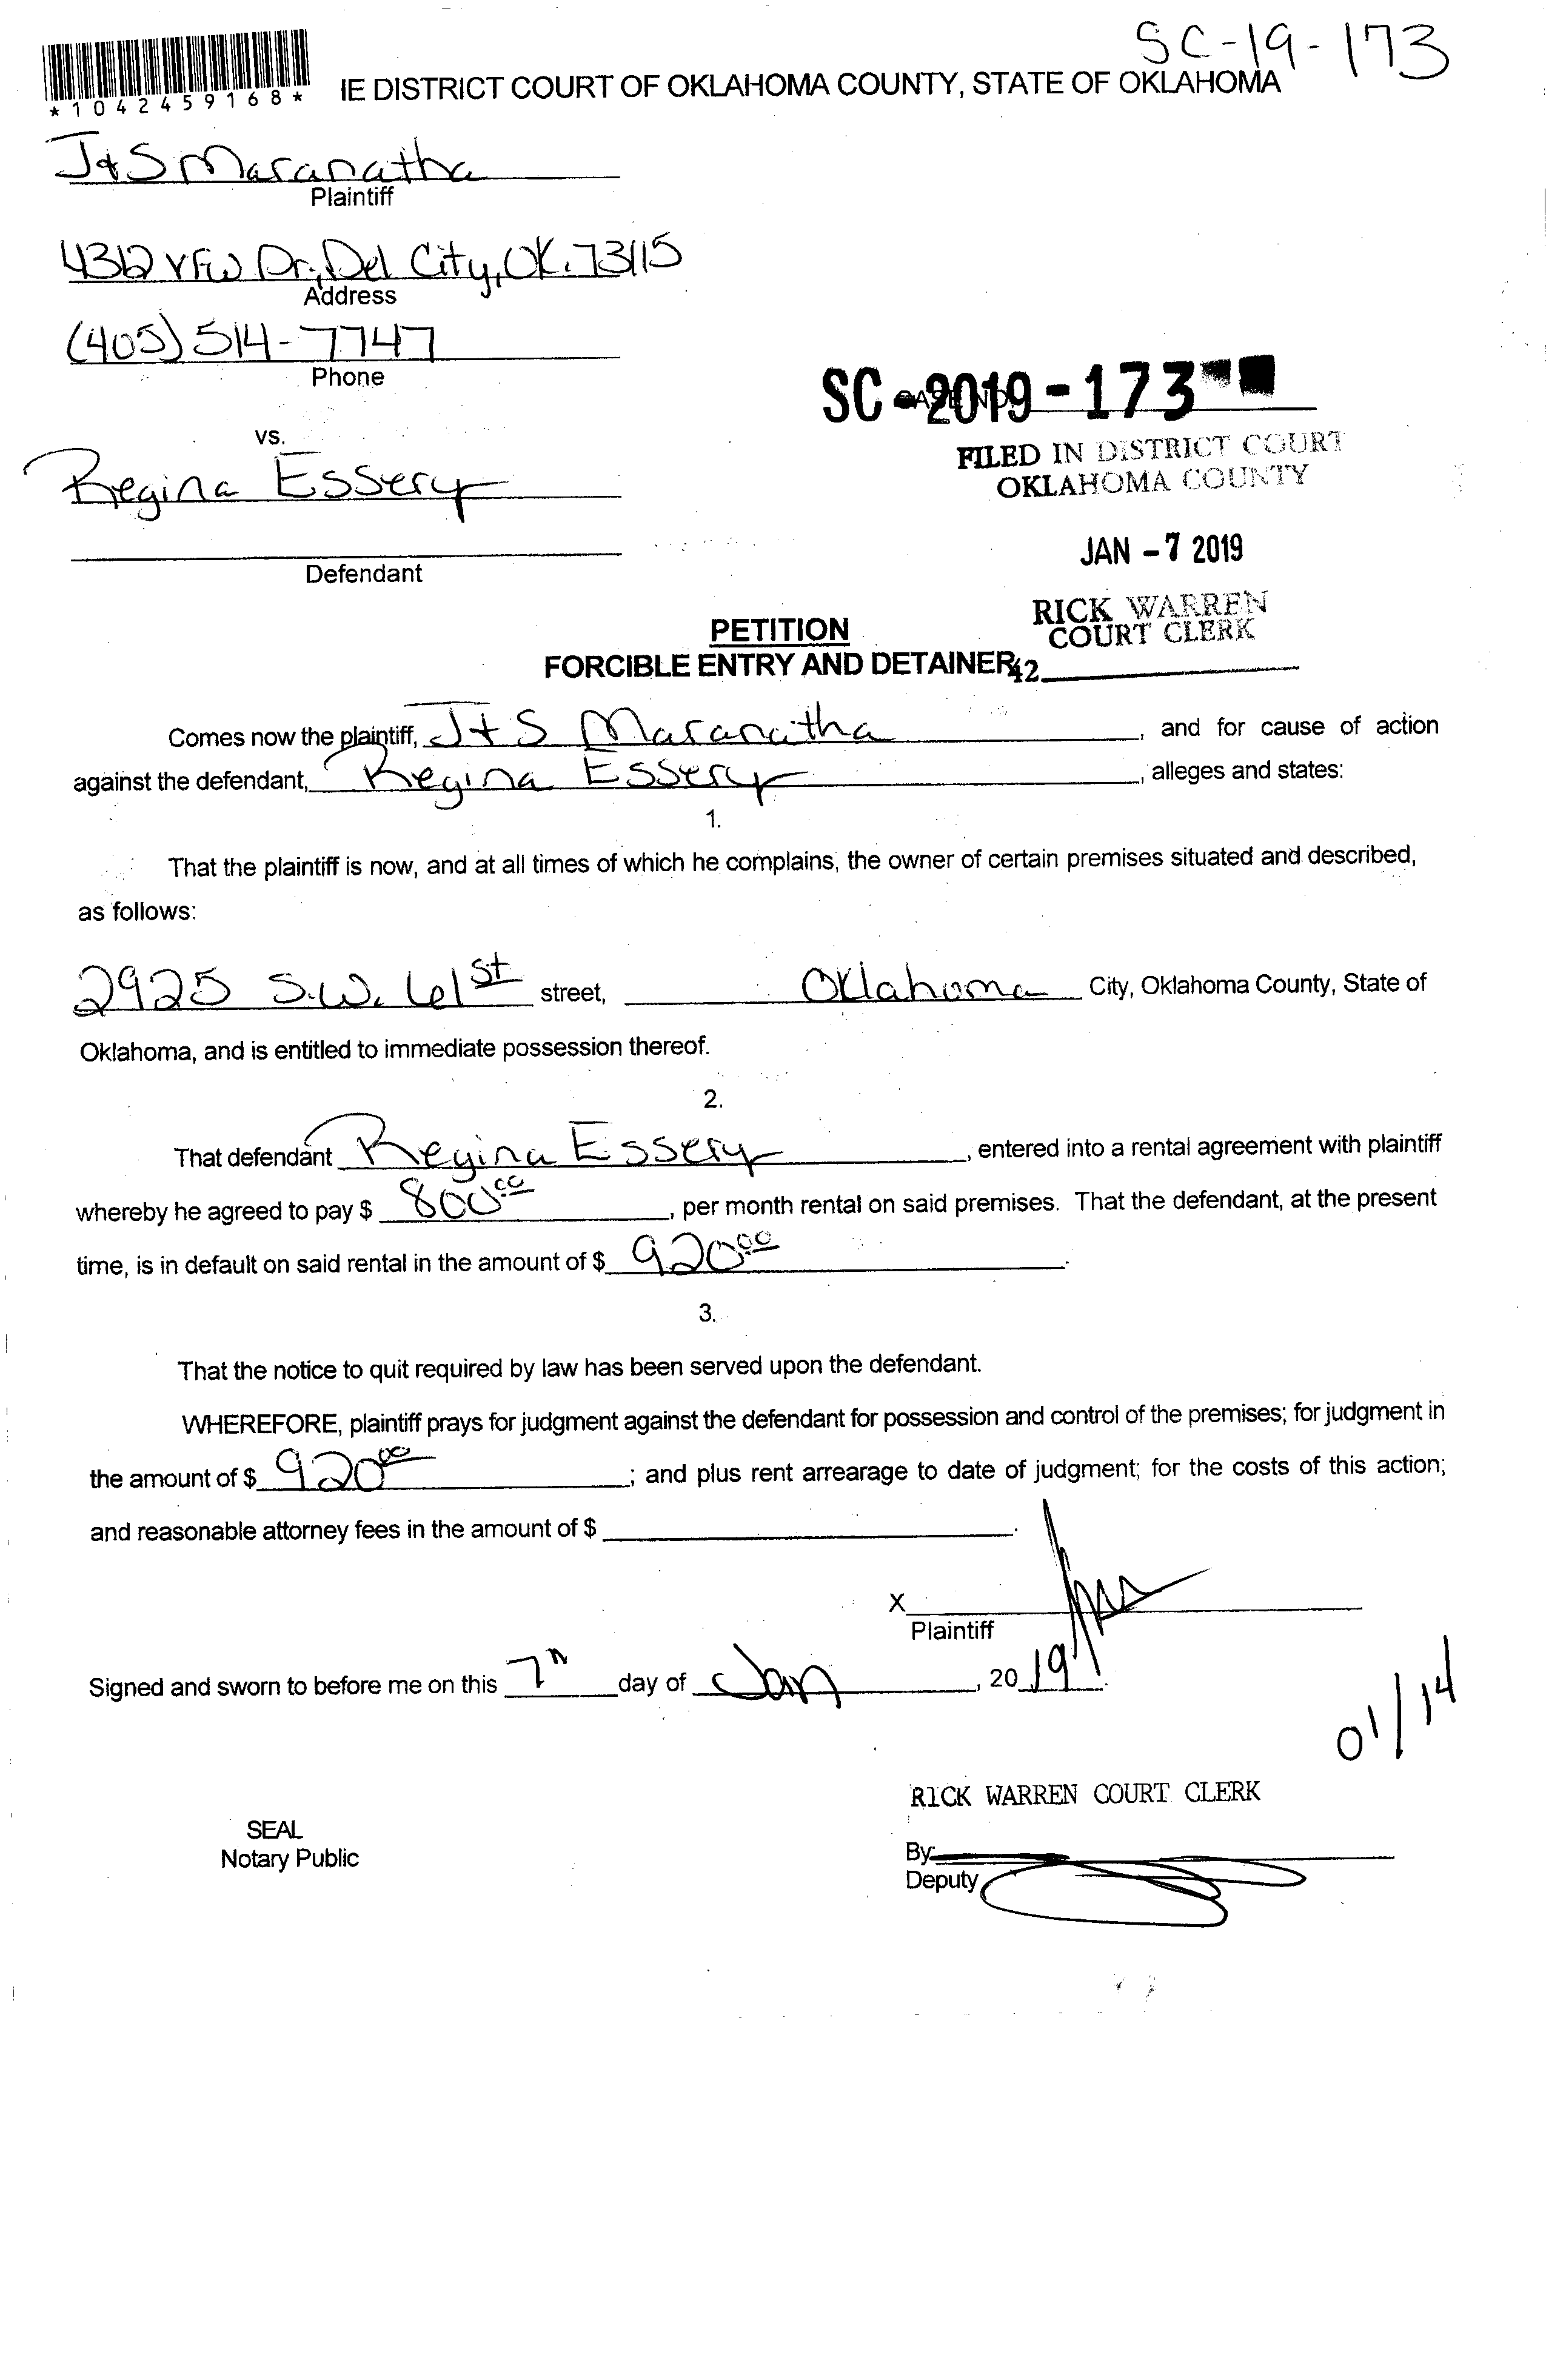 SC-19-173
*1042459168*
IE DISTRICT COURT OF OKLAHOMA COUNTY, STATE OF OKLAHOMA
J+S Maranatha
Plaintiff
4312 VFW Dr, Del City, OK. 73115
Address
(405) 514-7747
Phone
SC-2019-173
vs.
FILED IN DISTRICT COURT
OKLAHOMA COUNTY
Regina Essery
JAN -7 2019
Defendant
RICK WARREN
COURT CLERK
PETITION
FORCIBLE ENTRY AND DETAINER
42
Comes now the plaintiff, J+S Maranatha, and for cause of action
against the defendant, Regina Essery, alleges and states:
1.
That the plaintiff is now, and at all times of which he complains, the owner of certain premises situated and described,
as follows:
2925 S.W. 61st street, Oklahoma City, Oklahoma County, State of
Oklahoma, and is entitled to immediate possession thereof.
2.
That defendant Regina Essery, entered into a rental agreement with plaintiff
whereby he agreed to pay $ 800.00, per month rental on said premises. That the defendant, at the present
time, is in default on said rental in the amount of $ 920.00.
3.
That the notice to quit required by law has been served upon the defendant.
WHEREFORE, plaintiff prays for judgment against the defendant for possession and control of the premises; for judgment in
the amount of $ 920.00; and plus rent arrearage to date of judgment; for the costs of this action;
and reasonable attorney fees in the amount of $
X
Plaintiff
Signed and sworn to before me on this 7th day of Jan, 2019.
01/14
RICK WARREN COURT CLERK
SEAL
Notary Public
By
Deputy